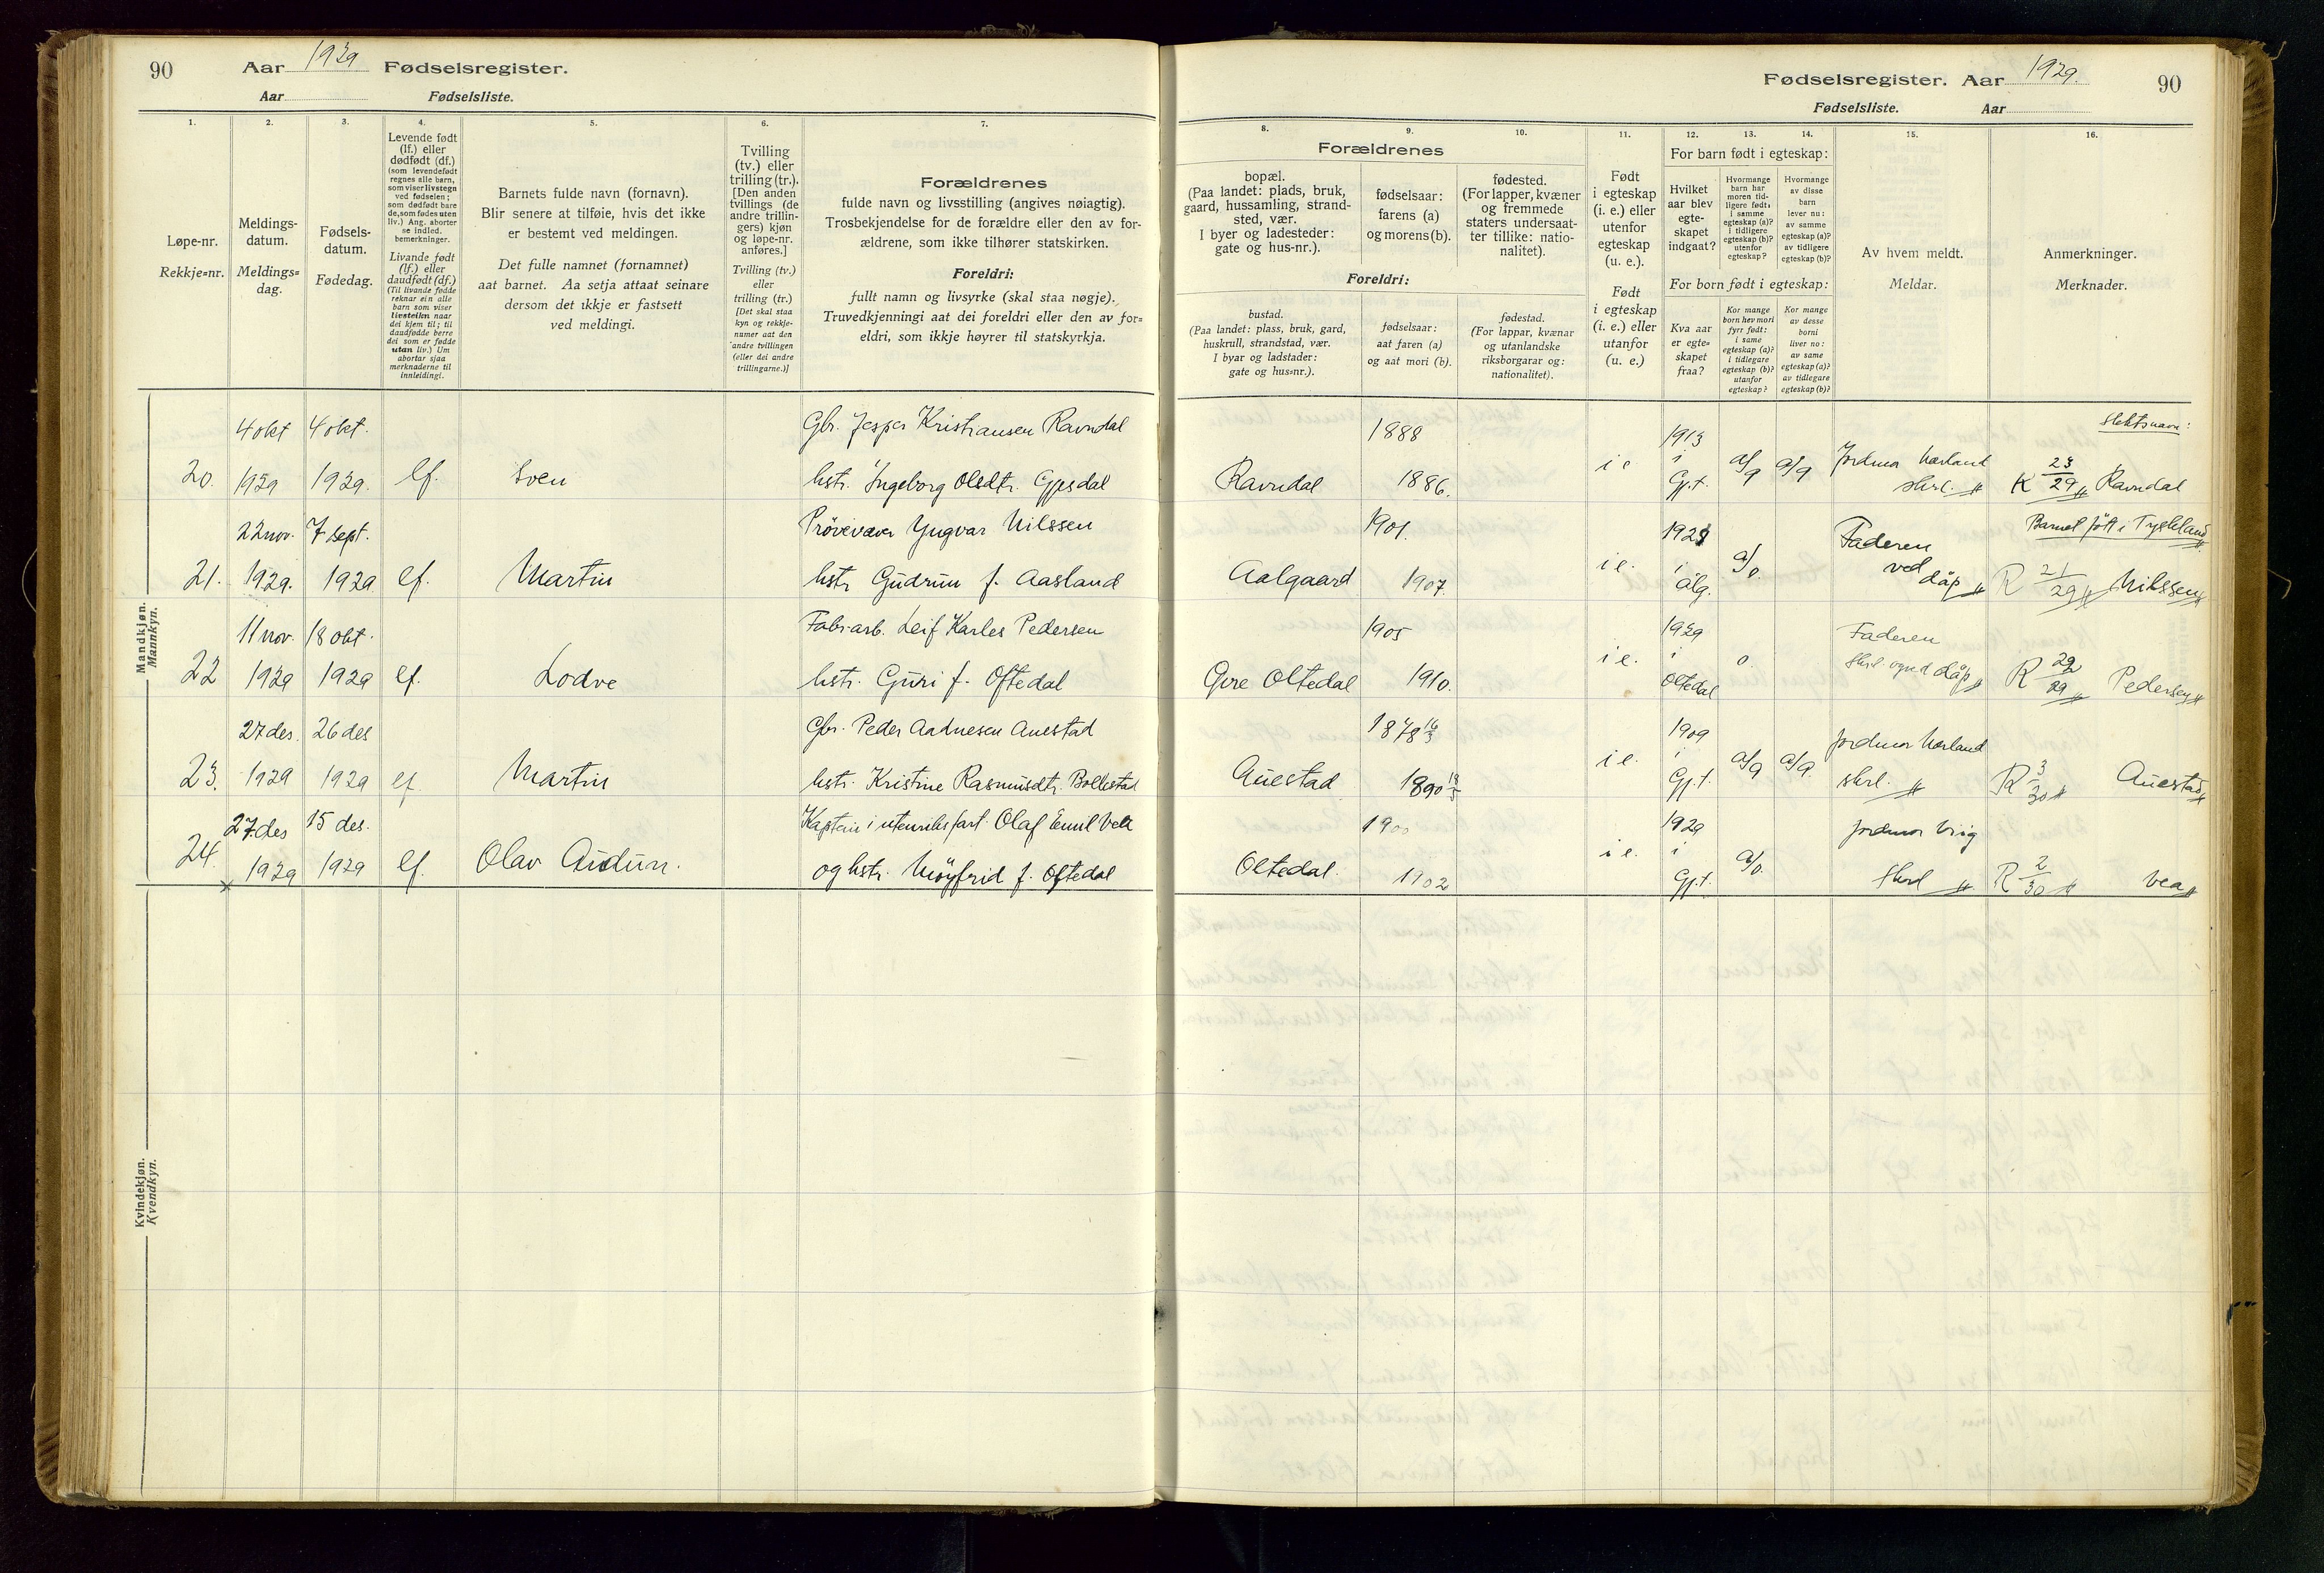 90
Aar 1929 Fødselsregister.
Aar Fødselsliste.
1.
2.
3.
4.
5.
6.
7.
Løpe-nr.
Rekkje-nr.
Meldings-
datum.
Meldings-
dag.
Fødsels-
datum.
Fødedag.
Levende født
(lf.) eller
dødfødt (df.)
(som levendefødt
regnes alle barn,
som viser livstegn
ved fødselen;
som dødfødt bare
de, som fødes uten
liv.) Ang. aborter
se indled.
bemerkninger.
Livande født
(lf.) eller
daudfødt (df.)
(Til livande fødde
reknar ein alle
barn som viser
livsteikn naar
dei kjem til; til
daudfødde berre
dei som er fødde
utan liv.) Um
abortar sjaa
merknaderne til
innleidingi.
Barnets fulde navn (fornavn).
Blir senere at tilføie, hvis det ikke
er bestemt ved meldingen.
Det fulle namnet (fornamnet)
aat barnet. Aa setja attaat seinare
dersom det ikkje er fastsett
ved meldingi.
Tvilling
(tv.) eller
trilling (tr.).
[Den anden
tvillings (de
andre trillin-
gers) kjøn
og løpe-nr.
anføres.]
Tvilling (tv.)
eller
trilling (tr.)
[Det skal staa
kyn og rekkje-
numer aat den
andre tvillingen
(eller dei andre
trillingarne.)]
Forældrenes
fulde navn og livsstilling (angives nøiagtig).
Trosbekjendelse for de forældre eller den av for-
ældrene, som ikke tilhører statskirken.
Foreldri:
fullt namn og livsyrke (skal staa nøgje).
Truvedkjenningi aat dei foreldri eller den av for-
eldri, som ikkje høyrer til statskyrkja.
Mandkjøn.
Mannkyn.
4 okt 4 okt. Gbr. Jesper Kristiansen Ravndal
20. 1929 1929. lf. Sven hstr. Ingeborg Olsdtr. Gjesdal
22 nov. 7 sept. Prøvevæver Yngvar Nilssen
21. 1929. 1929 lf. Martin hstr. Gudrun f. Aasland
11 nov. 18 okt. Fabr.arb. Leif Karles Pedersen
22 1929 1929 lf. Lodve hstr. Guri f. Oftedal
27 des. 26 des Gbr. Peder Aadnesen Auestad
23. 1929 1929 lf. Martin hstr. Kristine Rasmusdtr. Bollestad
27 des 15 des. Kaptein i utenriksfart Olaf Emil Vea
24. 1929 1929 lf. Olav Audun. og hstr. Møyfrid f. Oftedal
Kvindekjøn.
Kvendkyn.
Fødselsregister. Aar 1929.
90
Fødselsliste. Aar
8.
9.
10.
11.
12.
13.
14.
15.
16.
Forældrenes
bopæl.
(Paa landet: plads, bruk,
gaard, hussamling, strand-
sted, vær.
I byer og ladesteder:
gate og hus-nr.).
fødselsaar:
farens (a)
og morens (b).
fødested.
(For lapper, kvæner
og fremmede
staters undersaat-
ter tillike: natio-
nalitet).
Foreldri:
bustad.
(Paa landet: plass, bruk, gard,
huskrull, strandstad, vær.
I byar og ladstader:
gate og hus-nr.).
fødselsaar:
aat faren (a)
og aat mori (b).
fødestad.
(For lappar, kvænar
og utanlandske
riksborgarar og:
nationalitet).
Født
i egteskap
(i. e.) eller
utenfor
egteskap
(u. e.).
Født
i egteskap
(i. e.) eller
utanfor
(u. e.)
For barn født i egteskap:
Hvilket
aar blev
egte-
skapet
indgaat?
Hvormange
barn har
moren tid-
ligere født:
i samme
egteskap (a)?
i tidligere
egteskap (b)?
utenfor
egteskap?
Hvormange
av disse
barn
lever nu:
av samme
egteskap (a)?
av tidligere
egteskap (b)?
For born født i egteskap:
Kva aar
er egte-
skapet
fraa?
Kor mange
born hev mori
fyrr født:
i same
egteskap (a)?
i tidlegare
egteskap (b)?
utanfor
egteskap?
Kor mange
av desse
borni
liver no:
av same
egteskap (a)?
av tidlegare
egteskap (b)?
Av hvem meldt.
Meldar.
Anmerkninger.
Merknader.
Slektsnavn:
1888 1913
Ravndal 1886. i e. i Gj.t. a/9 a/9 Jordmor Hørland skrl. K 23/29 Ravndal
1901. 1928 Faderen Barnet født i Tyskland
Aalgaard 1907. i e. i Ålg. a/0. ved dåp R 21/29 Nilssen
1905 1929 Faderen
Gvre Oltedal 1910. i e. i Oltedal 0. skrl. og ved dåp R 29/29 Pedersen
1878 16/3 1909 Jordmor Hørland
Auestad 1890 18/5 i e. i Gj.t. a/9 a/9. skrl. R 3/30 Auestad
1900 1929 Jordmor Vig
Oltedal. 1902 i e. i Gj.t. a/0. skrl R 2/30 Vea